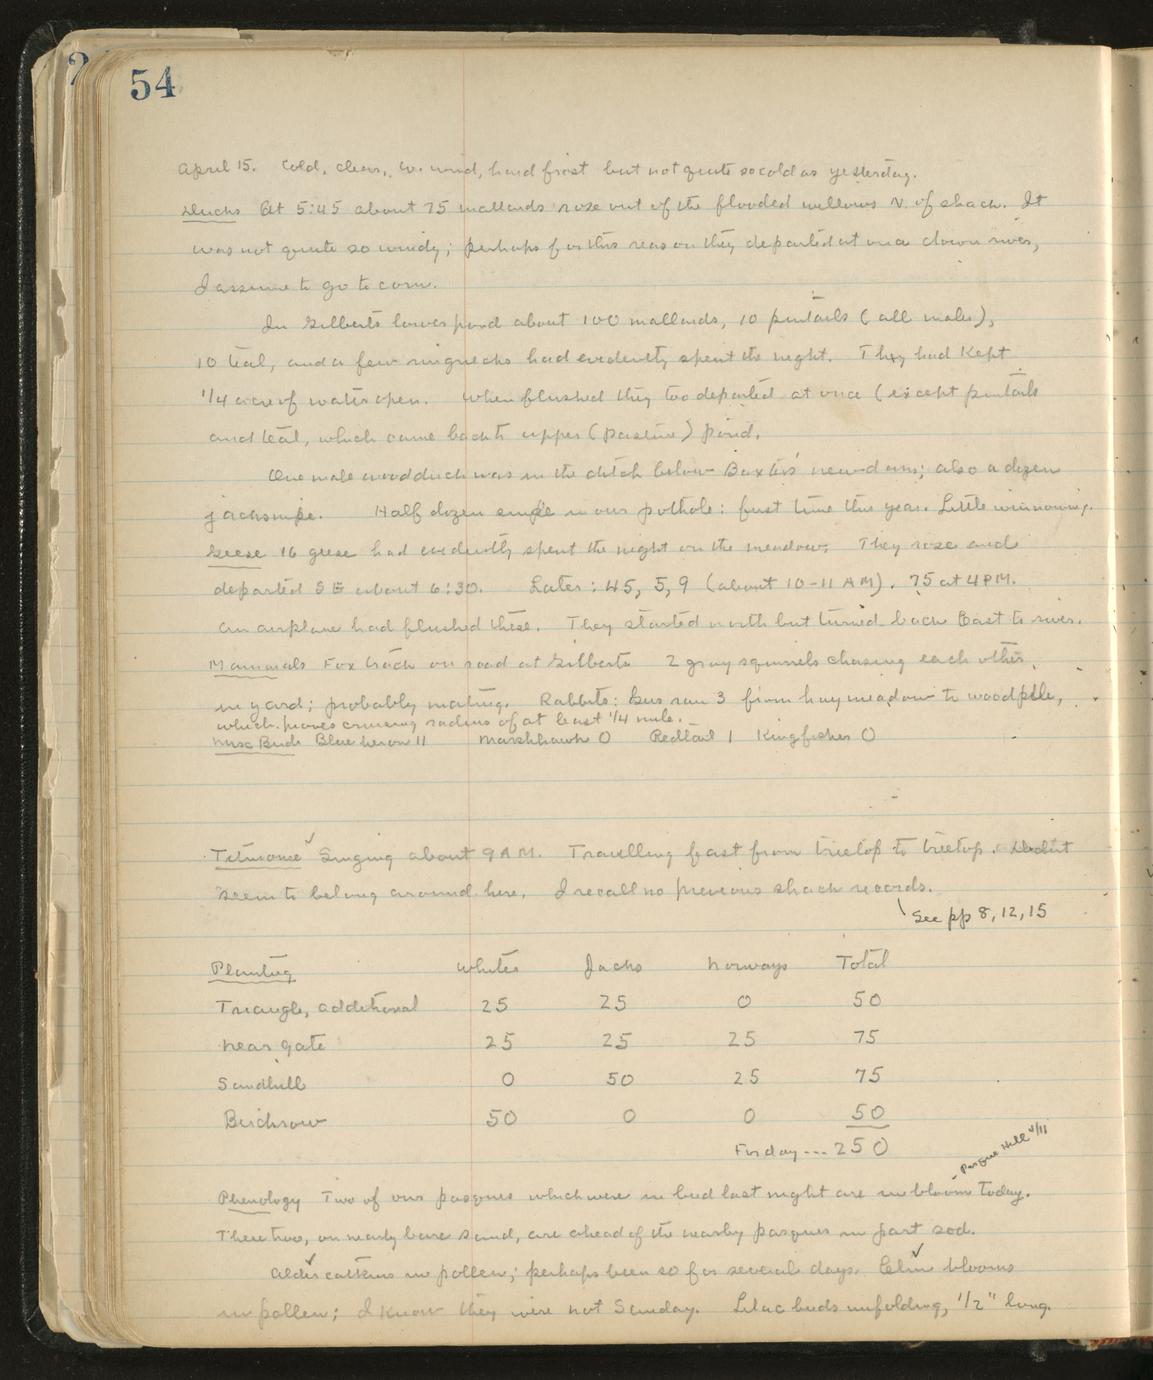 54
April 15. Cold, clear, W. wind, hard frost but not quite so cold as yesterday.
Ducks At 5:45 about 75 mallards rose out of the flooded willows N. of shack. It
was not quite so windy; perhaps for this reason they departed at once down river,
I assume to go to corn.
In Gilberts lower pond about 100 mallards, 10 pintails (all males),
10 teal, and a few ringnecks had evidently spent the night. They had kept
1/4 acre of water open. When flushed they too departed at once (except pintails
and teal, which came back to upper (pasture) pond.
One male woodduck was in the ditch below Baxters' new dam; also a dozen
jacksnipe. Half dozen snipe in our pothole: first time this year. Little winnowing.
Geese 16 geese had evidently spent the night on the meadow. They rose and
departed SE about 6:30. Later: 45, 5, 9 (about 10-11 AM). 75 at 4 PM.
An airplane had flushed these. They started north but turned back East to river.
Mammals Fox track on road at Gilberts 2 gray squirrels chasing each other
in yard; probably mating. Rabbits: Gus ran 3 from hay meadow to woodpile,
which proves cruising radius of at least 1/4 mile.
Misc Birds Blue heron 11 Marshhawk 0 Redtail 1 Kingfisher 0
Titmouse ✓ Singing about 9 AM. Travelling fast from treetop to treetop. Doesn't
seem to belong around here. I recall no previous shack records.
See pp 8, 12, 15
Planting Whites Jacks Norways Total
Triangle, additional 25 25 0 50
Near gate 25 25 25 75
Sandhill 0 50 25 75
Birchrow 50 0 0 50
For day --- 250
Pasque Hill 4/11
Phenology Two of our pasques which were in bud last night are in bloom today.
These two, on nearly bare sand, are ahead of the nearby pasques in part sod.
Alder ✓ catkins in pollen; perhaps been so for several days. Elm ✓ blooms
in pollen; I know they were not Sunday. Lilac buds unfolding, 1/2" long.